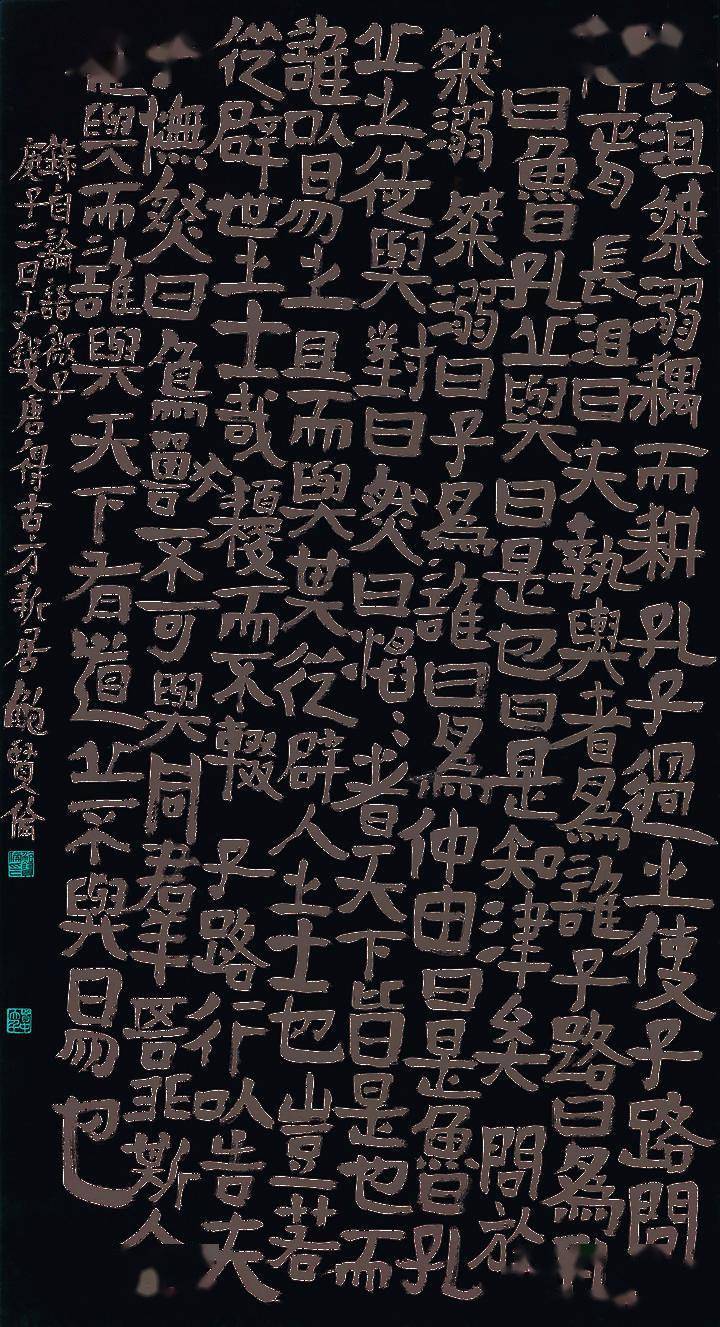 長沮桀溺耦而耕孔子過之使子路問
津焉長沮曰夫執輿者為誰子路曰為孔
曰魯孔丘與曰是也曰是知津矣問於
桀溺桀溺曰子為誰曰為仲由曰是魯孔
丘之徒與對曰然曰慆〻者天下皆是也而
誰以易之且而與其從辟人之士也豈若
從辟世之士哉耰而不輟子路行以告夫
憮然曰鳥獸不可與同羣吾非斯人
與而誰與天下有道丘不與易也
錄自論語微子
庚子二日于錢唐得古方新居鮑賢倫